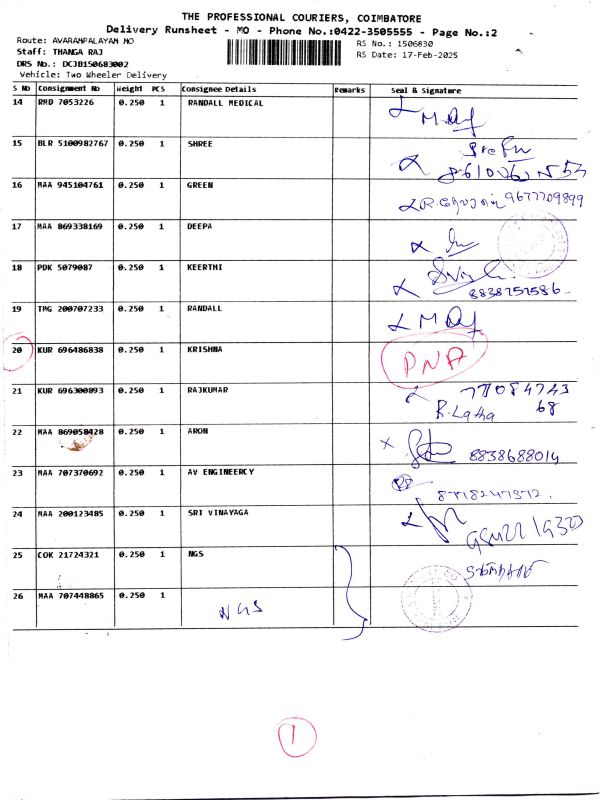 THE PROFESSIONAL COURIERS, COIMBATORE
Delivery Runsheet - MO - Phone No.:0422-3505555 - Page No.:2
Route: AVARAMPALAYAM MO
RS No.: 1506830
Staff: THANGA RAJ
RS Date: 17-Feb-2025
DRS No.: DCJB150683002
Vehicle: Two Wheeler Delivery
S No Consignment No Weight PCS Consignee Details Remarks Seal & Signature
14 RMD 7053226 0.250 1 RANDALL MEDICAL
15 BLR 5100982767 0.250 1 SHREE
16 MAA 945104761 0.250 1 GREEN 9677709899
17 MAA 869338169 0.250 1 DEEPA
18 PDK 5079087 0.250 1 KEERTHI
8838752586
19 TMG 200707233 0.250 1 RANDALL
20 KUR 696486838 0.250 1 KRISHNA PNA
21 KUR 696300893 0.250 1 RAJKUMAR
R.Latha 68
22 MAA 869058428 0.250 1 ARON 8838688014
23 MAA 707370692 0.250 1 AV ENGINEERCY
24 MAA 200123485 0.250 1 SRI VINAYAGA
25 COK 21724321 0.250 1 NGS
26 MAA 707448865 0.250 1 NGS
1